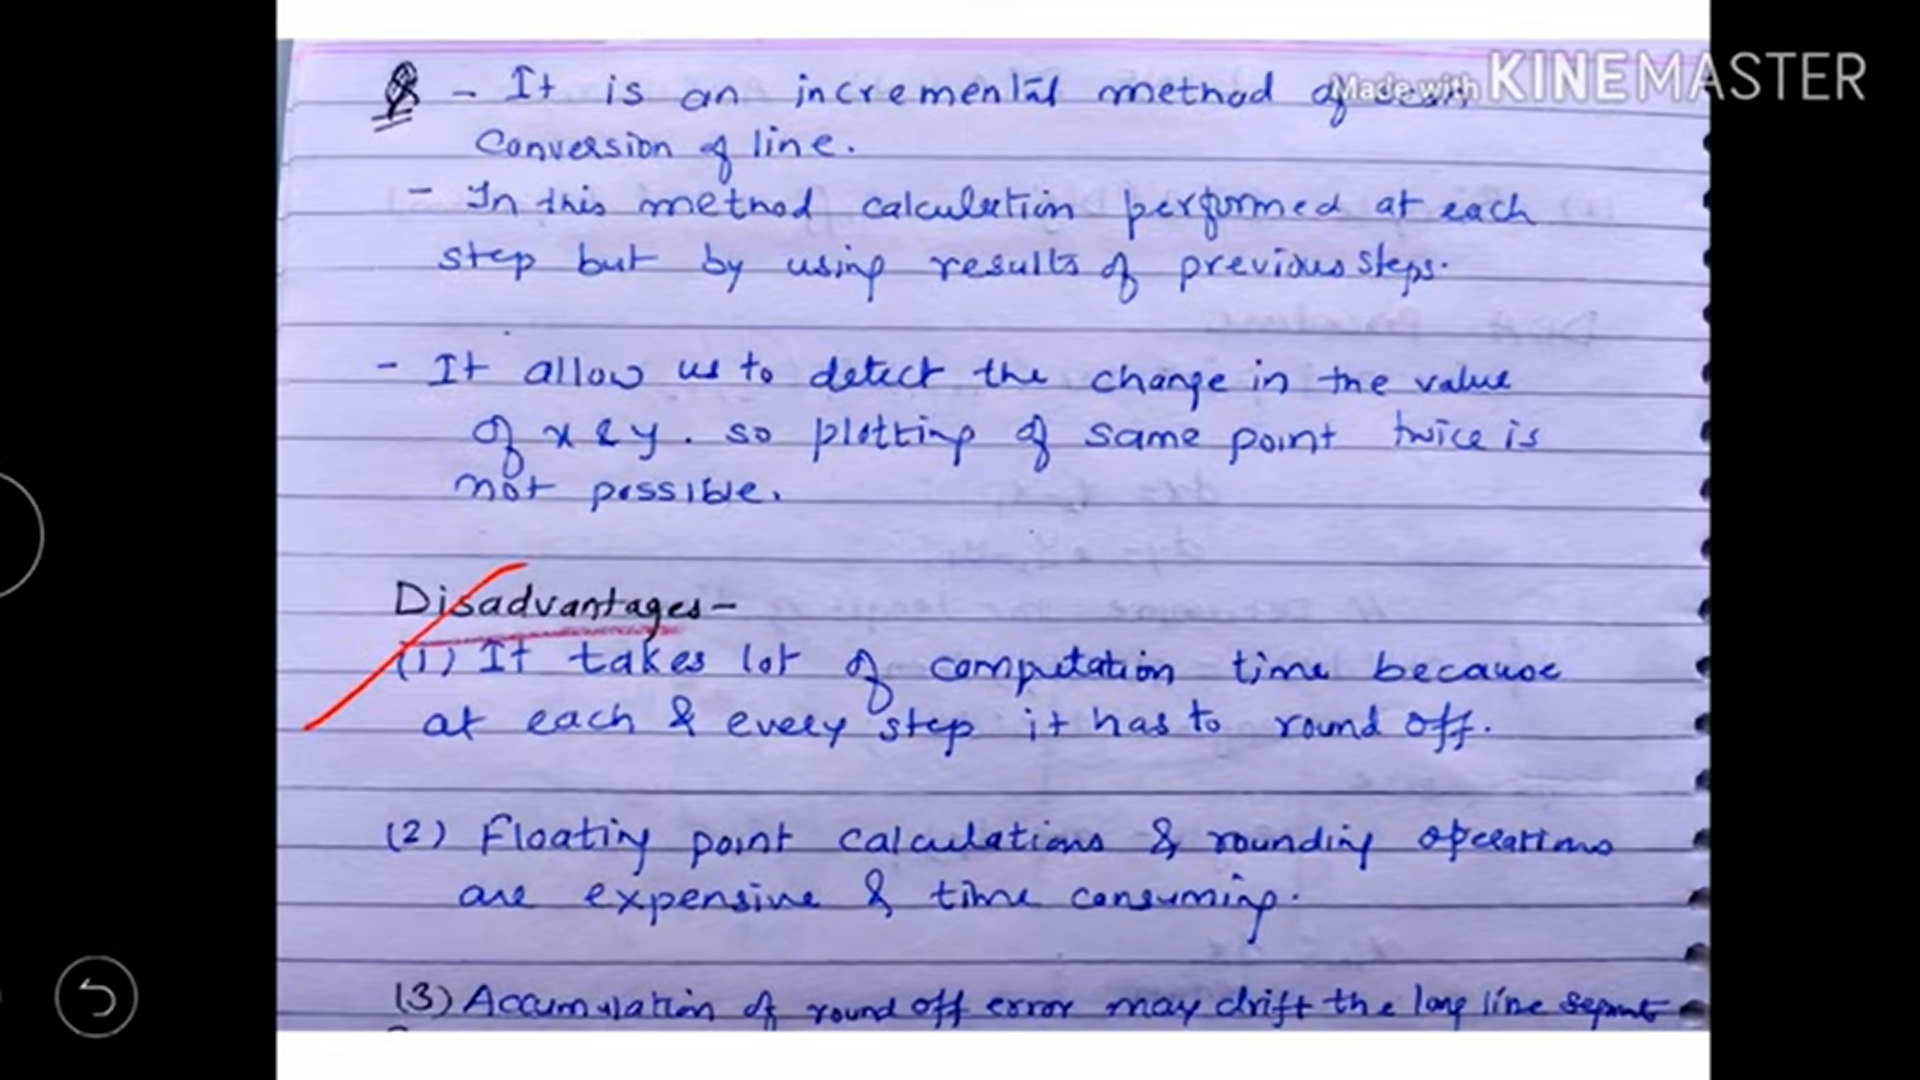 - It is an incremental method of scan
Made with KINEMASTER
Conversion of line.
- In this method calculation performed at each
step but by using results of previous steps.
- It allow us to detect the change in the value
of x & y. so plotting of same point twice is
not possible.
Disadvantages-
(1) It takes lot of computation time because
at each & every step it has to round off.
(2) Floating point calculations & rounding operations
are expensive & time consuming.
(3) Accumulation of round off error may drift the long line